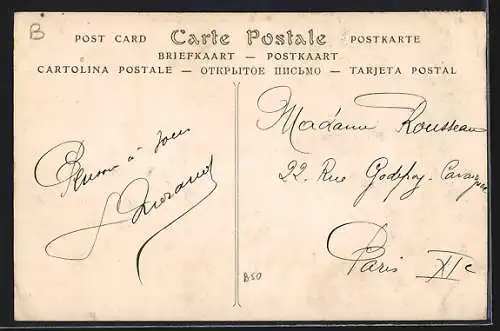 B
POST CARD Carte Postale POSTKARTE
BRIEFKAART — POSTKAART
CARTOLINA POSTALE — ОТКРЫТОЕ ПИСЬМО — TARJETA POSTAL
à
Durand
Madame Rousseau
22. Rue Godefroy-Cavaignac
Paris XIe
B50